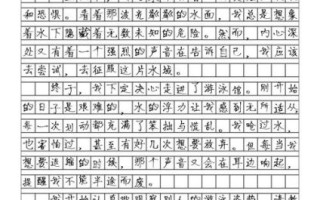 和恐惧。看着那波光粼粼的水面，我总是想象
着水下隐藏着无数未知的危险。然而，内心深
处又有着一个强烈的声音在告诉自己，我应该
去尝试，去征服这片水域。
终于，我下定决心走进了游泳馆。刚开始
的日子是艰难的，水的浮力让我感到无所适从
每一次划动都充满了笨拙与慌乱。我呛过水，
也害怕过，甚至有好几次想要放弃。但每当我
想要退缩的时候，那个声音又会在耳边响起，
提醒我不能半途而废。